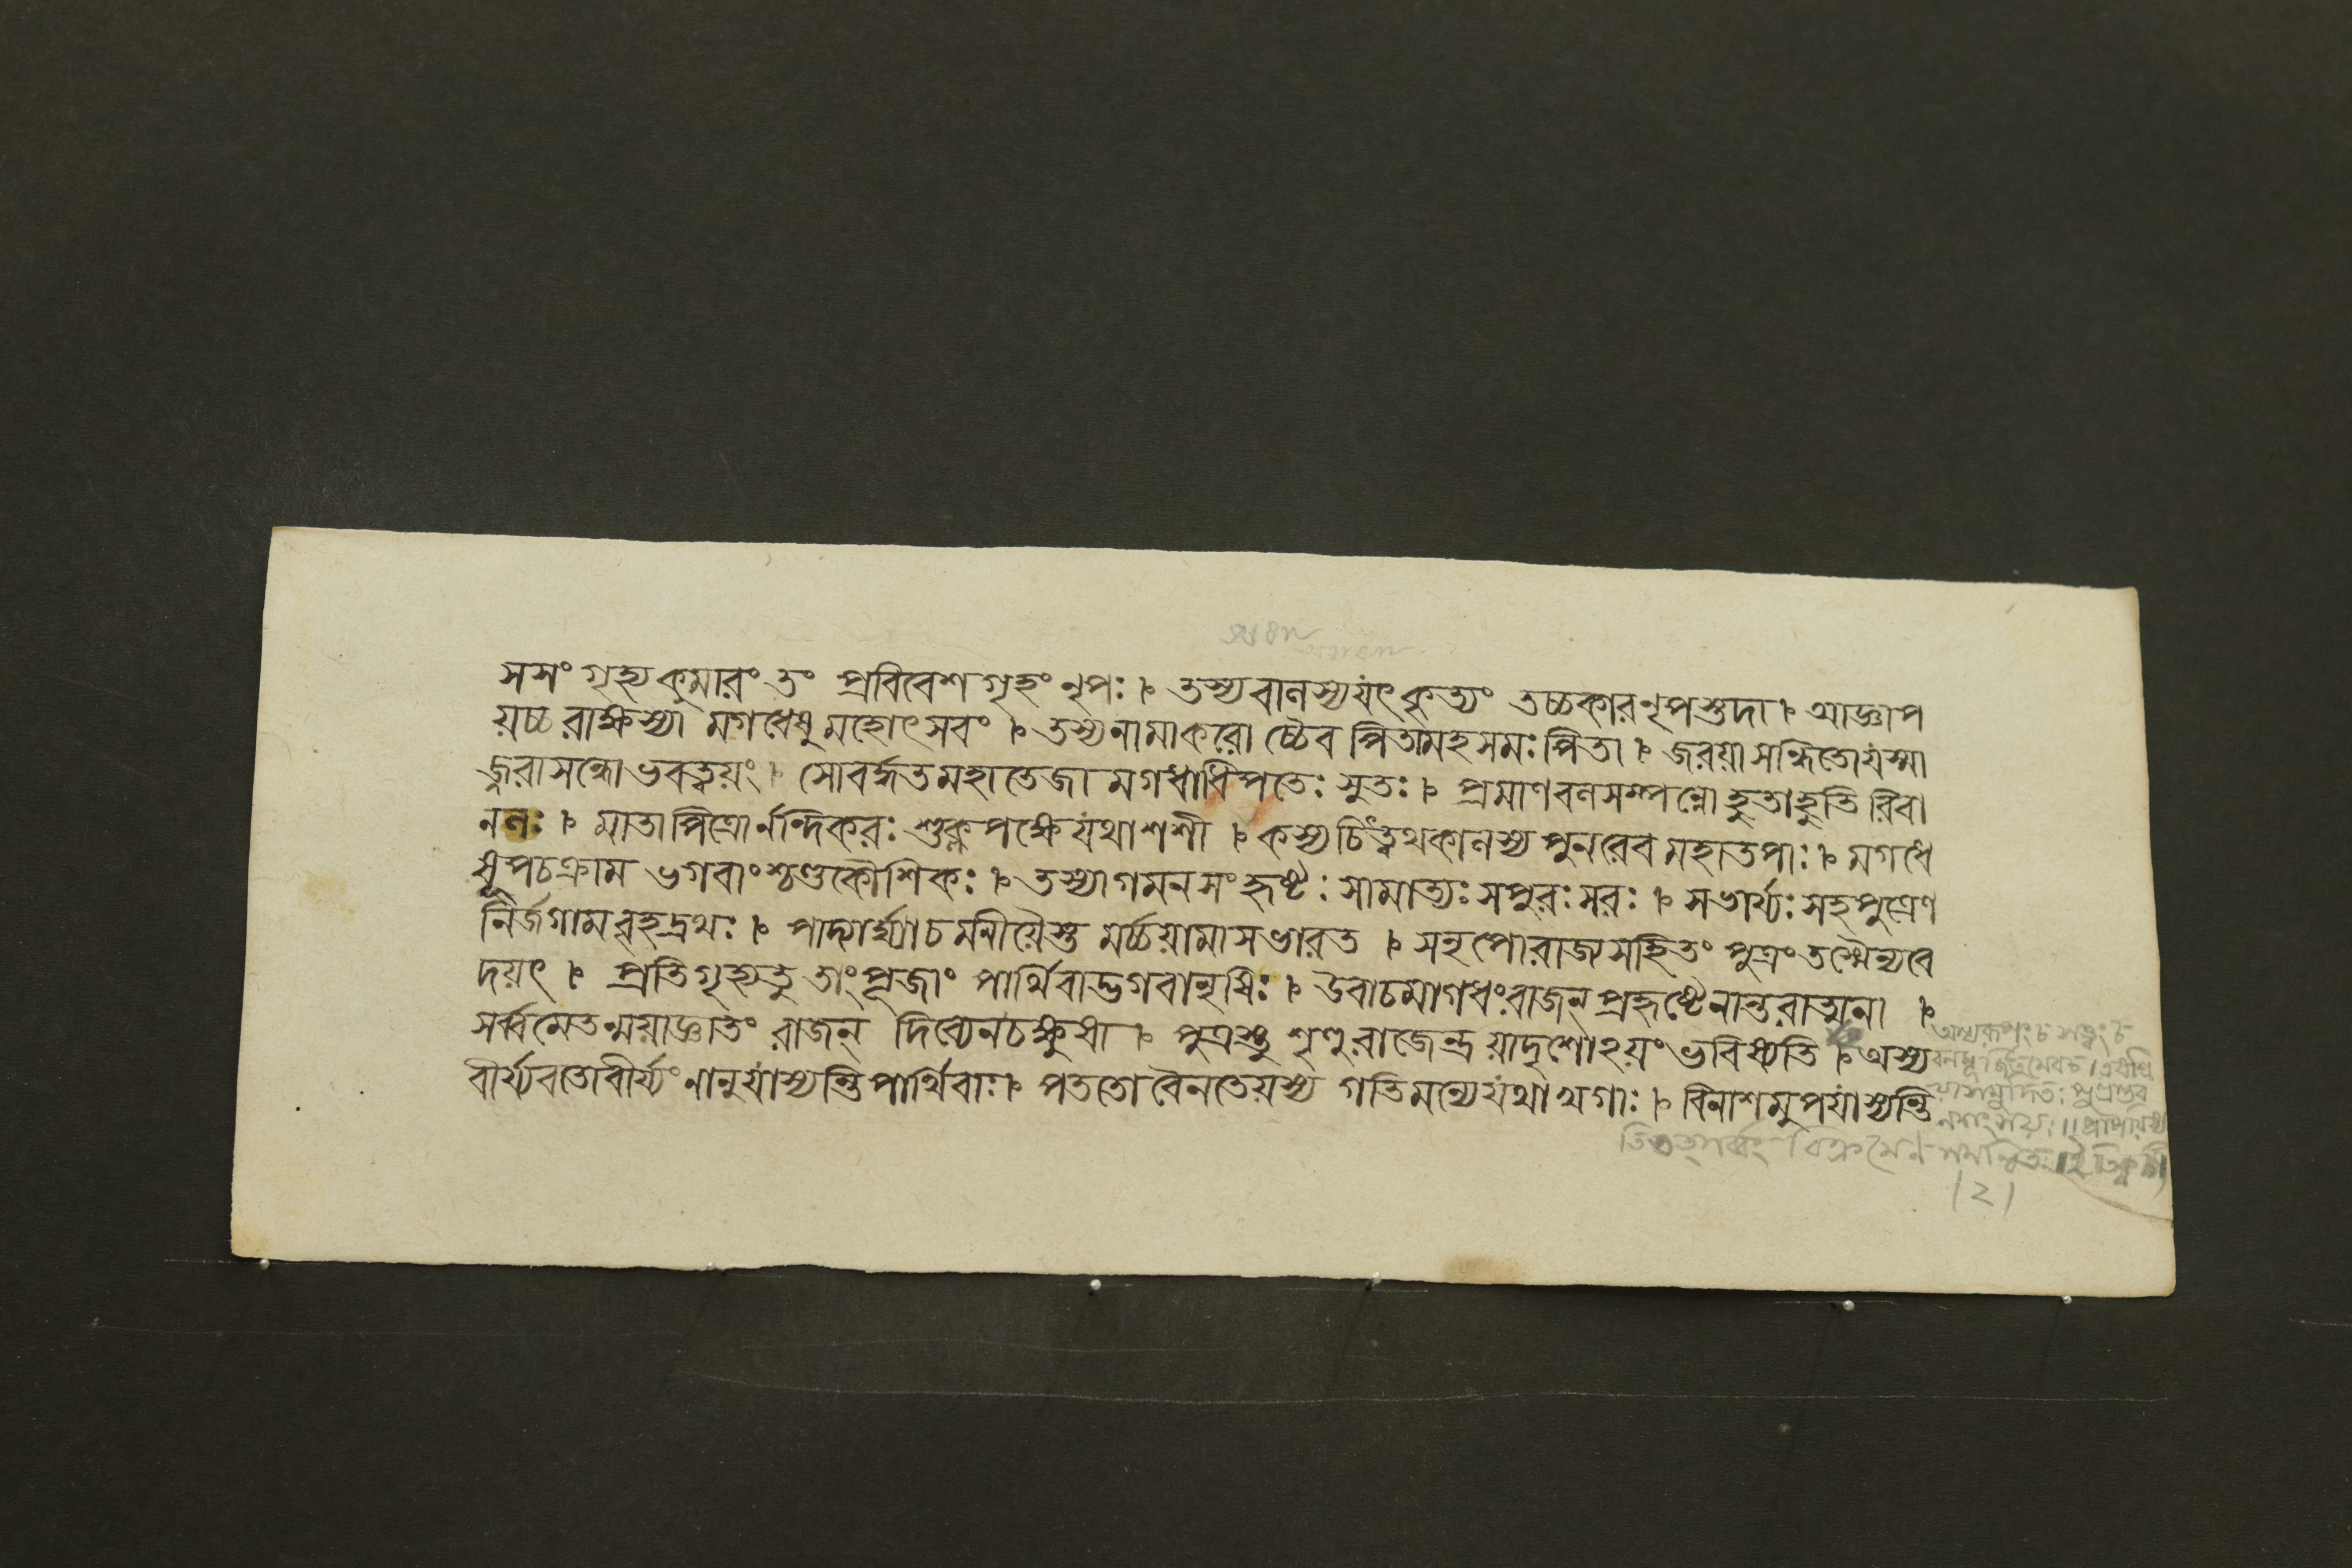 সসংগৃহ্যকুমারংতং প্রবিবেশগৃহংনৃপঃ । তস্যবালস্যযৎকৃত্যং তচ্চকারনৃপস্তদা । আজ্ঞাপ
য়চ্চরাক্ষস্যা মগধেষুমহোৎসবং । তস্যনামাকরোচ্চৈব পিতামহসমঃপিতা । জরয়াসন্ধিতোযস্মা
জ্জরাসন্ধোভবত্বয়ং । সোবর্দ্ধতমহাতেজা মগধাধিপতেঃসুতঃ । প্রমাণবলসম্পন্নো হুতাহুতিরিবা
নলঃ । মাতাপিত্রোর্নন্দিকরঃ শুক্লপক্ষেযথাশশী । কস্যচিত্ত্বথকালস্য পুনরেবমহাতপাঃ । মগধে
ষূপচক্রাম ভগবাংশ্চণ্ডকৌশিকঃ । তস্যাগমনসংহৃষ্টঃ সামাত্যঃসপুরঃসরঃ । সভার্য্যঃসহপুত্রেণ
নির্জগামবৃহদ্রথঃ । পাদ্যার্ঘ্যাচমনীয়ৈস্তু মর্চ্চয়ামাসভারত । সনৃপোরাজ্যসহিতং পুত্রংতস্মৈন্যবে
দয়ৎ । প্রতিগৃহ্যতুতাংপূজাং পার্থিবাদ্ভগবানৃষিঃ । উবাচমাগধংরাজন্ প্রহৃষ্টেনান্তরাত্মনা ।
সর্ব্বমেতন্ময়াজ্ঞাতং রাজন্ দিব্যেনচক্ষুষা । পুত্রস্তু শৃণুরাজেন্দ্র যাদৃশোঽয়ংভবিষ্যতি । অস্য
বীর্য্যবতোবীর্য্যং নানুযাস্যন্তিপার্থিবাঃ । পততোবৈনতেয়স্য গতিমন্যেযথাখগাঃ । বিনাশমুপযাস্যন্তি
অস্যরূপংচ সত্ত্বংচ
বলমূর্জিতমেবচ ।
সমুদিতঃ পুত্রস্তব
নসংশয়ঃ ॥
বিক্রমেণ
।২।